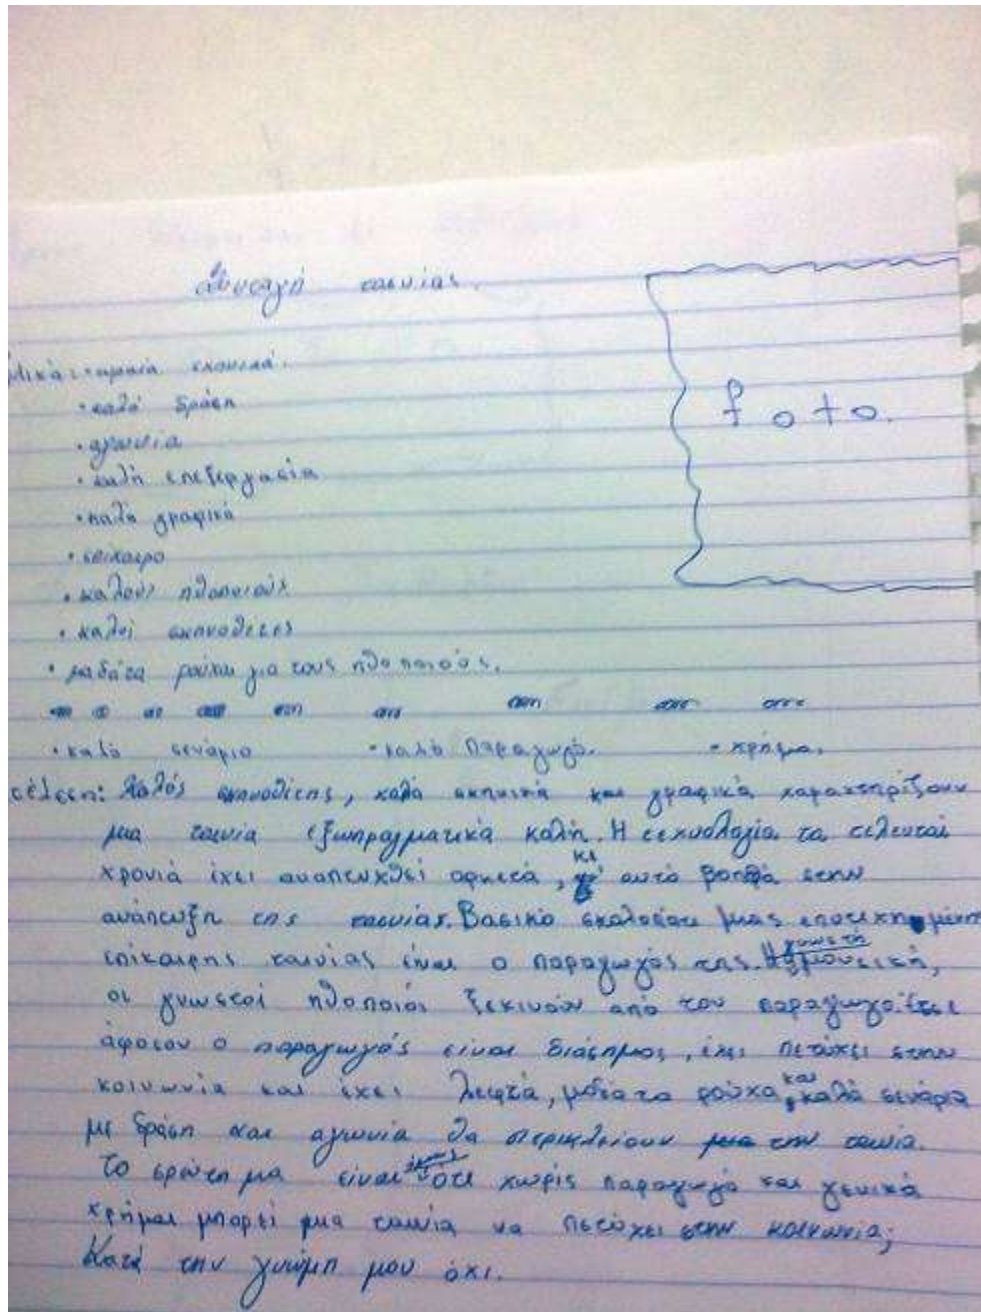 Συνταγή ταινίας.
Υλικά: ωραία σκηνικά.
foto.
• καλή δράση
• αγωνία
• καλή επεξεργασία
• καλά γραφικά
• επίκαιρο
• καλούς ηθοποιούς
• καλοί σκηνοθέτες
• μοδάτα ρούχα για τους ηθοποιούς.
• καλό σενάριο • καλό παραγωγό. • χρήμα.
Καλός σκηνοθέτης, καλά σκηνικά και γραφικά χαρακτηρίζουν
μια ταινία εξωπραγματικά καλή. Η τεχνολογία τα τελευταί
χρονιά έχει αναπτυχθεί αρκετά, κι αυτό βοηθά στην
ανάπτυξη της ταινίας. Βασικό μιας
επίκαιρης ταινίας είναι ο παραγωγός της. Η γνωστή μουσική,
οι γνωστοί ηθοποιοί ξεκινούν από τον παραγωγό. Έτσι
άφοσον ο παραγωγός είναι διάσημος, έχει πετύχει στην
κοινωνία και έχει λεφτά, μόδατα ρούχα, και καλά σενάρια
με δράση και αγωνία θα περικλείουν την ταινία.
Το ερώτημα είναι όμως χωρίς παραγωγό και γενικά
χρήμα μπορεί μια ταινία να πετύχει στην κοινωνία;
Κατά την γνώμη μου όχι.